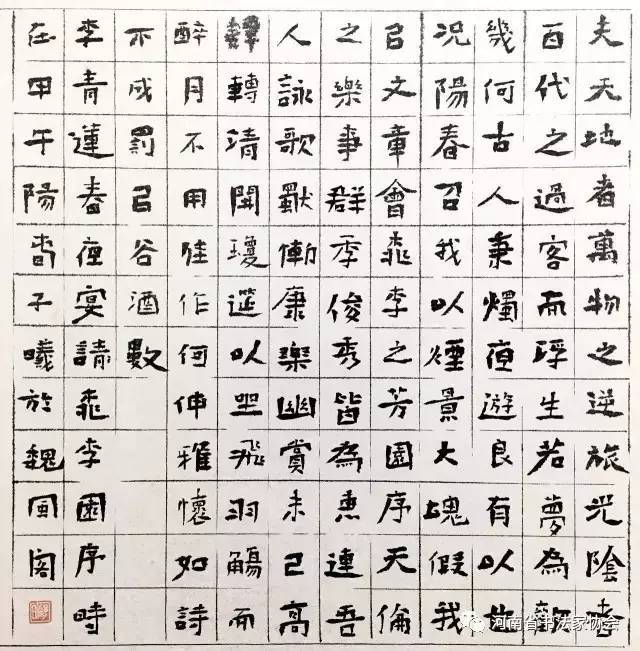 夫天地者萬物之逆旅光陰者
百代之過客而浮生若夢為歡
幾何古人秉燭夜遊良有以也
况陽春召我以煙景大塊假我
以文章會桃李之芳園序天倫
之樂事群季俊秀皆為惠連吾
人詠歌慚康樂幽賞未已高
轉清開瓊筵以坐飛羽觴而
醉月不用佳作何伸雅懷如詩
不成罰以谷酒數
李青蓮春夜宴請桃李園序時
在甲午陽春子曦於魏風閣
河南省书法家协会